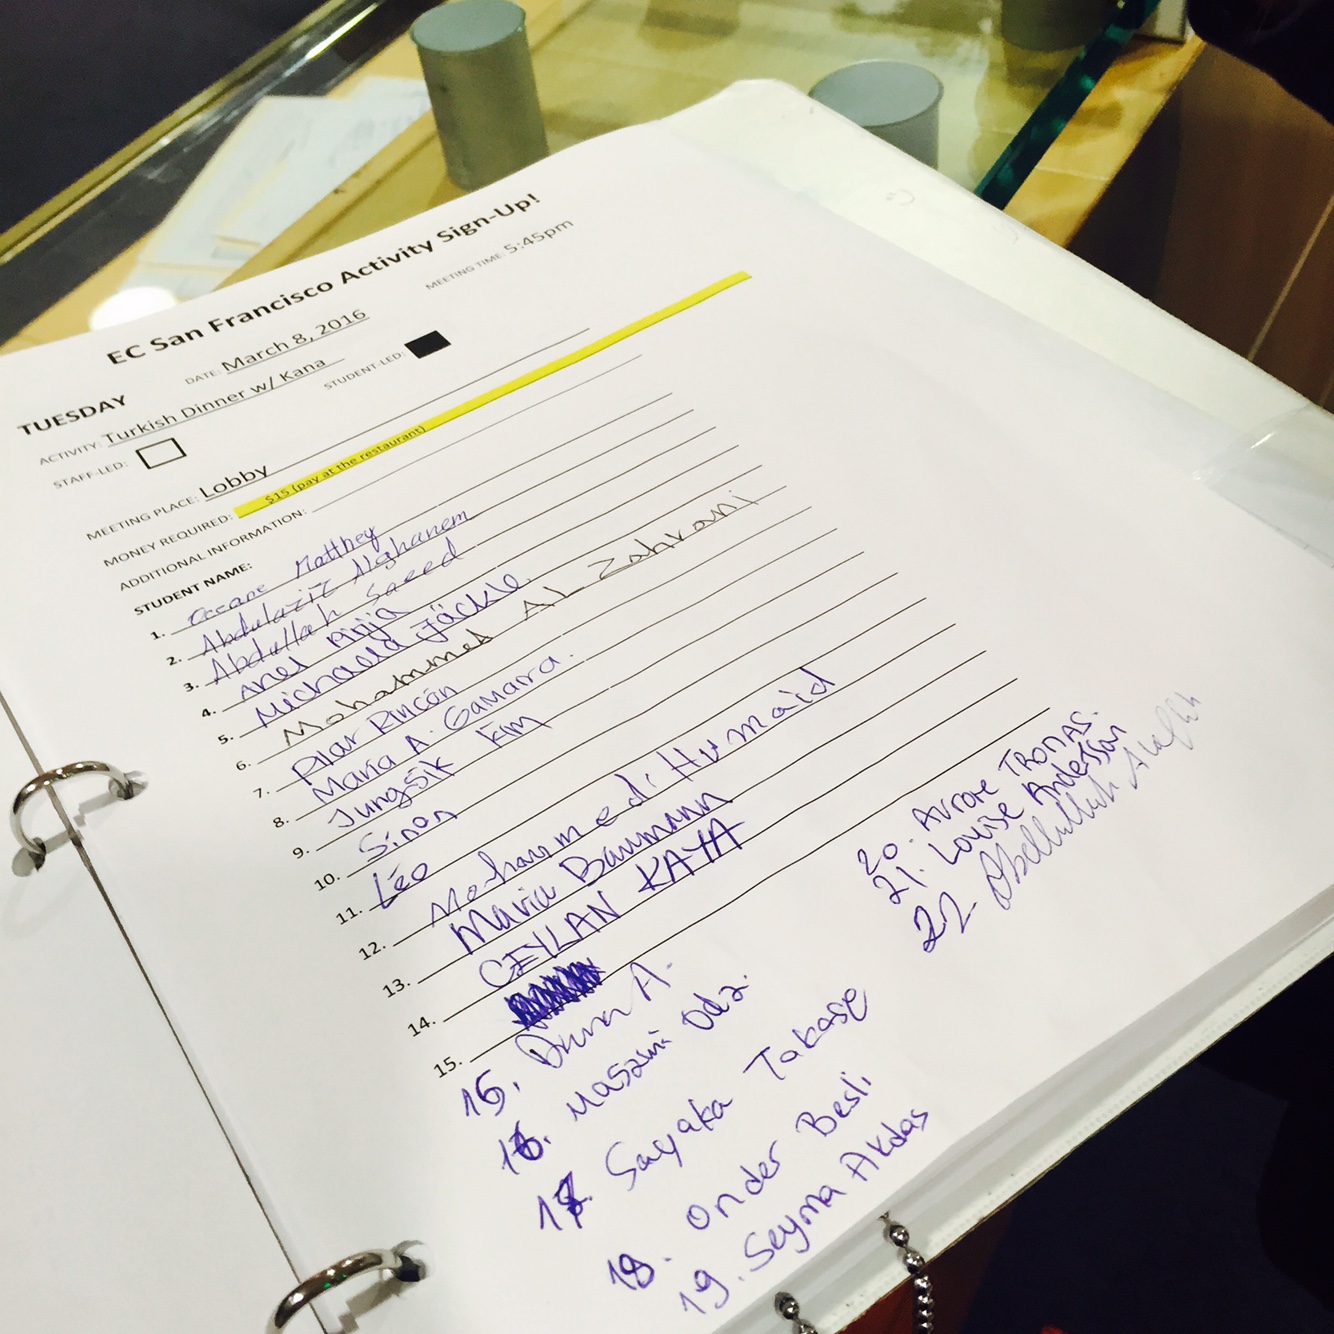 EC San Francisco Activity Sign-Up!
TUESDAY DATE: March 8, 2016 MEETING TIME 5:45pm
ACTIVITY: Turkish Dinner w/ Kana
STAFF-LED: STUDENT-LED:
MEETING PLACE: Lobby
MONEY REQUIRED: $15 (pay at the restaurant)
ADDITIONAL INFORMATION:
STUDENT NAME:
1. Oceane Matthey
2. Abdulaziz Alghanem
3. Abdullah Saeed
4. Anel
5. Michaela Jäckle
6. Mohammed AL Zahrani
7. Pilar Rincón
8. Maria A. Gamarra.
9. Jungsik Kim
10. Sinan
11. Léo
12. Mohammed Humaid
13. Maria Baumann
14. CEYLAN KAYA
15.
15. A.
16. Masami Oda.
17. Sayaka Takase
18. Onder Besli
19. Seyma Akdas
20. Aurore THOMAS.
21. Louise Andersson
22